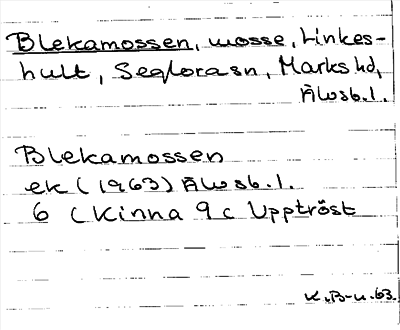 Blekamossen, mosse, Linkes-
hult, Seglorasn, Marks hd,
Älvsb. l.
Blekamossen
ek (1963) Älvsb. l.
6 (Kinna 9 c Upptröst
K. B-n. 63.